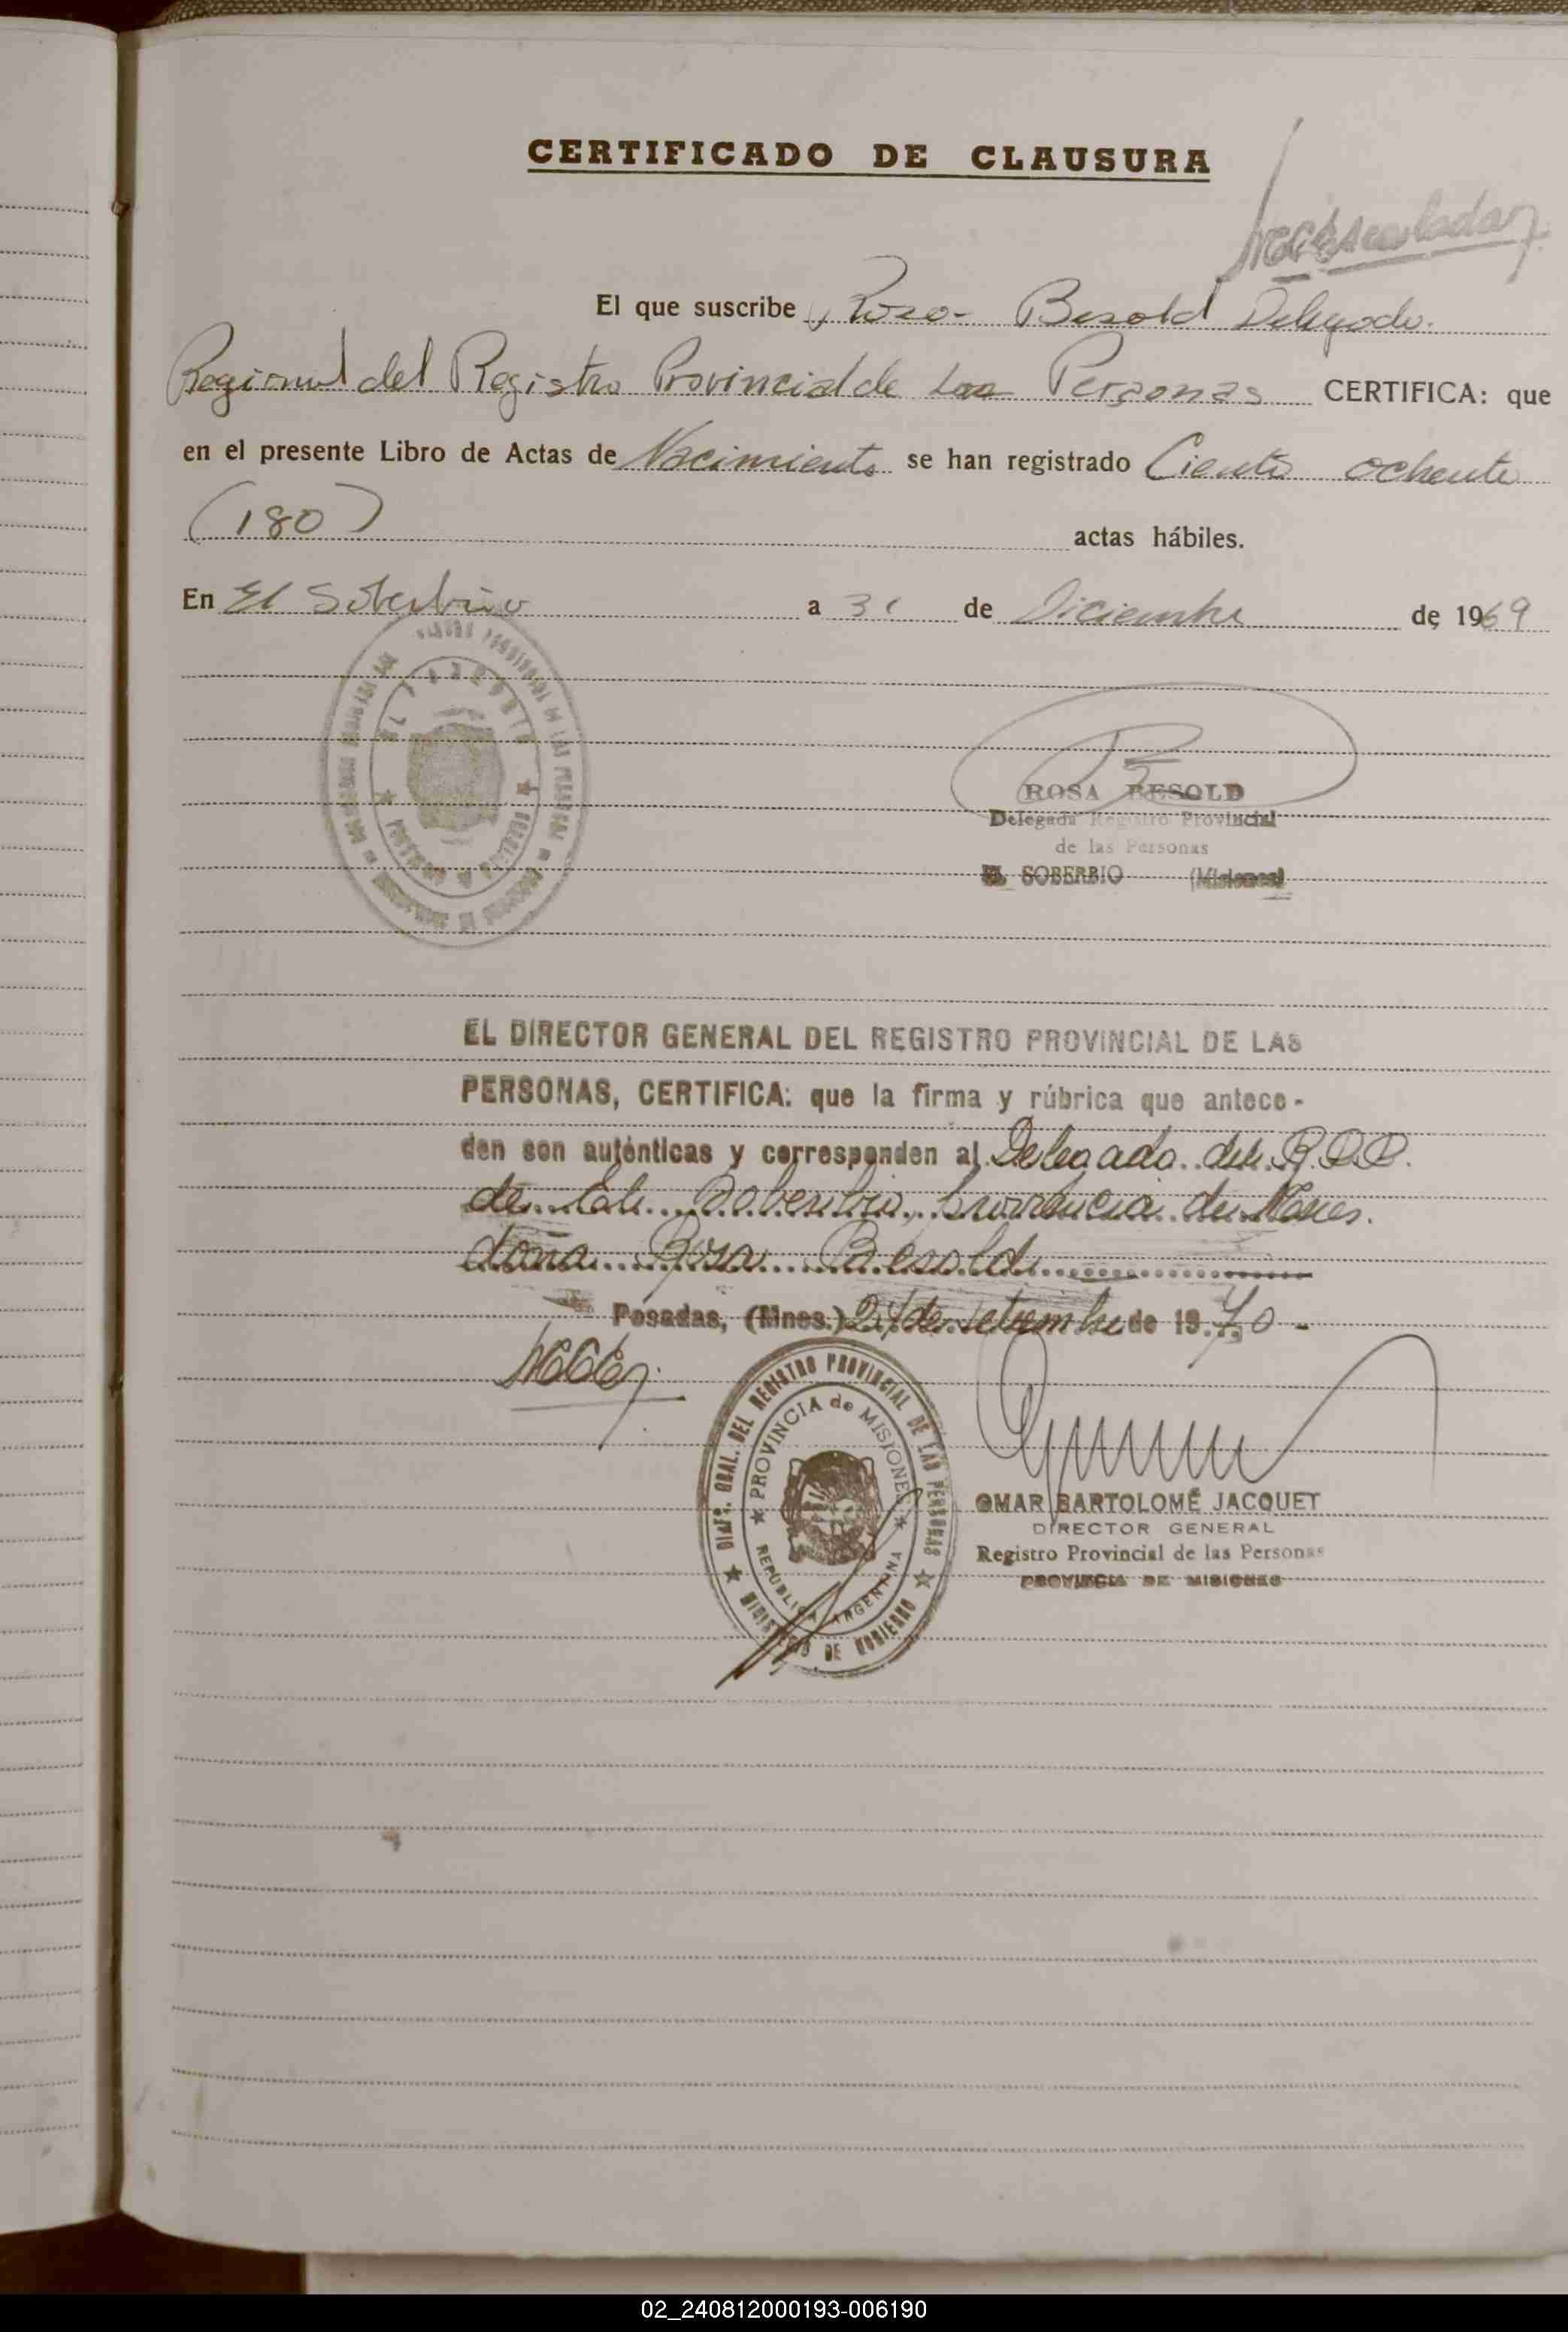 CERTIFICADO DE CLAUSURA
El que suscribe, Rosa Besold Delegada
Regional del Registro Provincial de las Personas CERTIFICA: que
en el presente Libro de Actas de Nacimiento se han registrado Ciento ochenta
(180) actas hábiles.
En El Soberbio a 31 de Diciembre de 1969
ROSA BESOLD
Delegada Registro Provincial
de las Personas
EL SOBERBIO (Misiones)
EL DIRECTOR GENERAL DEL REGISTRO PROVINCIAL DE LAS
PERSONAS, CERTIFICA: que la firma y rúbrica que antece-
den son auténticas y corresponden al Delegada del R.P.P.
de El Soberbio, provincia de Mnes.
doña Rosa Besold
Posadas, (Mnes.) 24 de setiembre de 1970-
DIREC. GRAL. DEL REGISTRO PROVINCIAL DE LAS PERSONAS
MINISTERIO DE GOBIERNO
PROVINCIA de MISIONES
REPÚBLICA ARGENTINA
OMAR BARTOLOMÉ JACQUET
DIRECTOR GENERAL
Registro Provincial de las Personas
PROVINCIA DE MISIONES
02_240812000193-006190